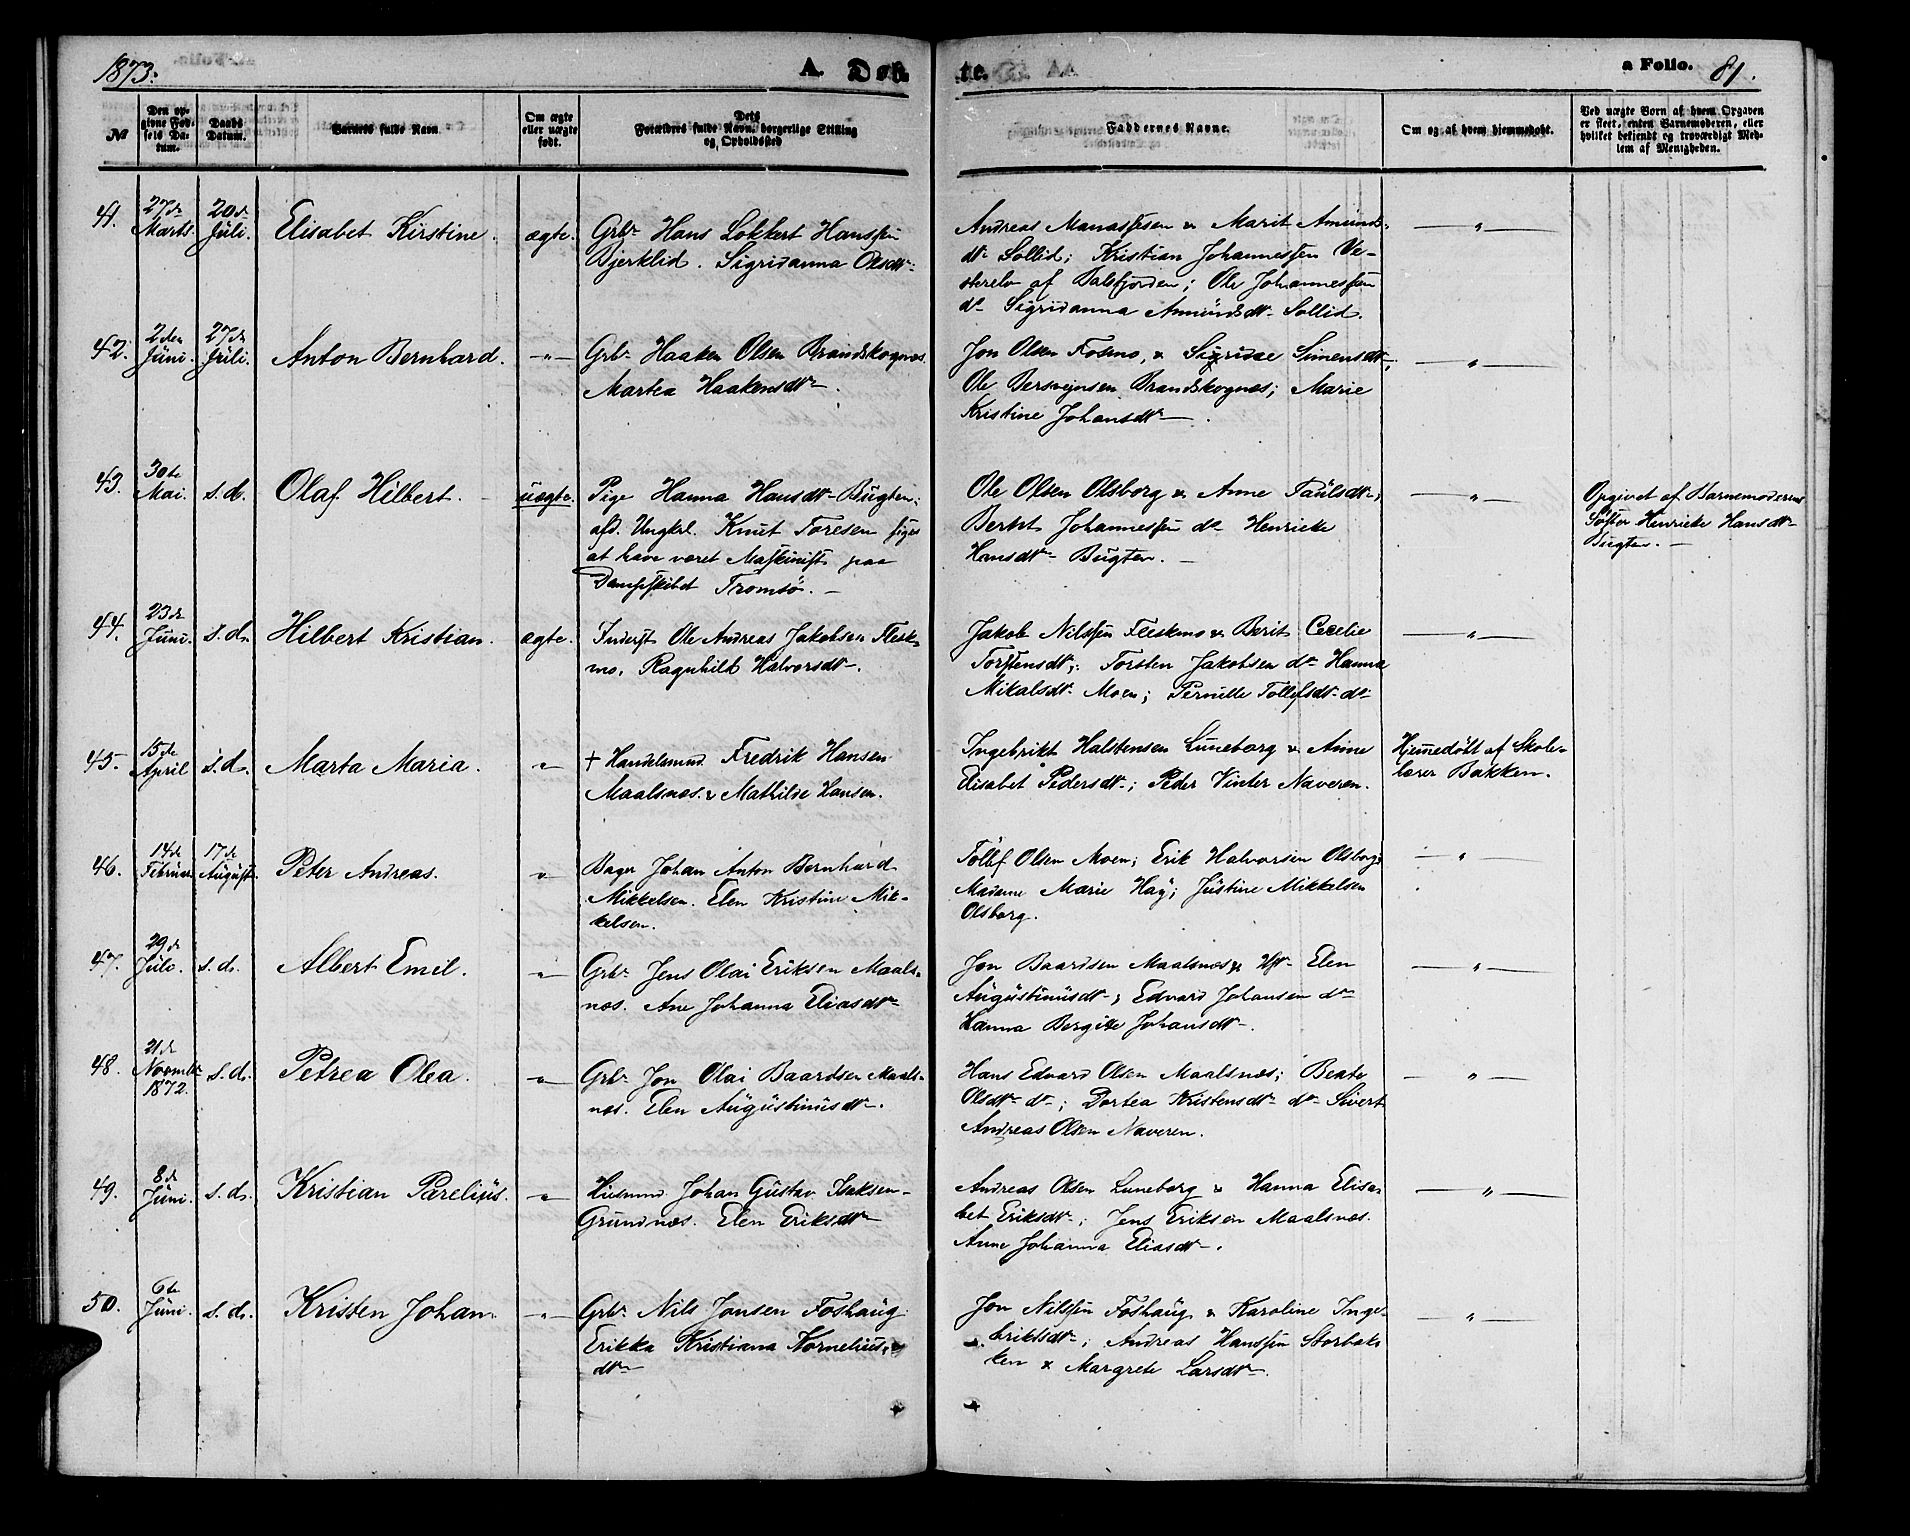 1873.
A. Døb-
te.
a Folio. 81.
№
Den op-
givne Fød-
sels Da-
tum.
Daabs
Datum.
Barnets fulde Navn
Om ægte
eller uægte
født.
Dets
Forældres fulde Navn, borgerlige Stilling
og Opholdssted
Faddernes Navne.
Om og af hvem hjemmedøbt.
Ved uægte Børn af hvem Opgaven
er skeet, enten Barnemoderen, eller
hvilket bekjendt og troværdigt Med-
lem af Menigheden.
41. 27de Marts. 20de Juli. Elisabet Kirstine. ægte.
Grbr. Hans Lokkert Hanssen
Bjerklid. Sigridanna Olsdtr.
Andreas Manassesen & Marit Amunds-
dtr. Sollid; Kristian Johannessen Ve-
sterelv af Balsfjorden; Ole Johannessen
do Sigridanna Amundsdtr. Sollid.
— " —
42. 2den Juni. 27de Juli. Anton Bernhard. — " —
Grbr. Haaken Olsen Brandskognæs.
Martea Haakensdtr.
Jon Olsen Fosmo, & Sigridæ Simensdtr.;
Ole Bersvejnsen Brandskognæs; Marie
Kristine Johansdtr.
— " —
43. 30te Mai. s.d. Olaf Hilbert. uægte.
Pige Hanna Hansdtr. Bugten.
afd. Ungkrl. Knut Toresen siges
at have været Maskinist paa
Dampskibet Tromsö.
Ole Olsen Olsborg & Anne Paulsdtr.;
Bernt Johannessen do Henrikke
Hansdtr. Bugten.
— " —
Opgivet af Barnemoderens
Söster Henrikke Hansdtr.
Bugten.
44. 23de Juni. s.d. Hilbert Kristian. ægte.
Inderst Ole Andreas Jakobsen Flesk-
mo. Ragnhild Halvorsdtr.
Jakob Nilssen Fleskmo & Berit Cecelie
Torstensdtr.; Torsten Jakobsen do Hanna
Mikalsdtr. Moen; Pernille Tollefsdtr. do
— " —
45. 15de April s.d. Marta Maria. "
+ Handelsmd. Fredrik Hansen
Maalsnæs. & Mathilde Hansen.
Ingebrikt Halstensen Luneborg & Anne
Elisabet Pedersdtr.; Peder Vinter Naveren.
Hjemmedöbt af Skole-
lærer Bakken.
46. 14de Februar. 17de August. Peter Andreas. "
Bager Johan Anton Bernhard
Mikkelsen. Elen Kristine Mik-
kelsen.
Tollef Olsen Moen; Erik Halvorsen Olsborg;
Madame Marie Hay; Justine Mikkelsen
Olsborg.
— " —
47. 29de Juli. s.d. Albert Emil. "
Grbr. Jens Olai Eriksen Maals-
næs. Ane Johanna Eliasdtr.
Jon Baardsen Maalsnæs & Hst. Elen
Augustinusdtr.; Edvard Johansen do
Hanna Bergitte Johansdtr.
— " —
48. 21de Novembr. 1872. s.d. Petrea Olea. "
Grbr. Jon Olai Baardsen Maals-
næs. Elen Augustinusdtr.
Hans Edvard Olsen Maalsnæs; Beate
Olsdtr. do; Dortea Kristensdtr. do Sivert
Andreas Olsen Naveren.
— " —
49. 8de Juni. s.d. Kristian Parelius. "
Husmd. Johan Gustav Isaksen
Grundnæs. Elen Eriksdtr.
Andreas Olsen Luneborg & Hanna Elisa-
bet Eriksdtr.; Jens Eriksen Maalsnæs.
Anne Johanna Eliasdtr.
— " —
50. 6te Juni. s.d. Kristen Johan. "
Grbr. Nils Jonsen Foshaug
Erikka Kristiana Kornelius-
dtr.
Jon Nilssen Foshaug & Karoline Inge-
briktsdtr.; Andreas Hanssen Storbak-
ken & Margrete Larsdtr.
— " —